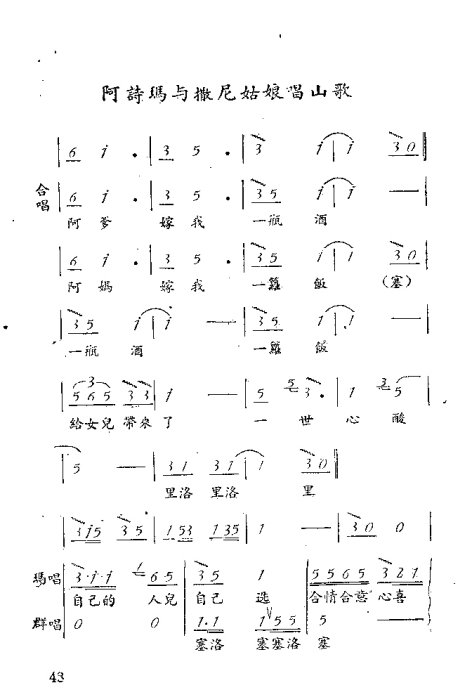 阿詩瑪与撒尼姑娘唱山歌
6 1 · 3 5 · 3 1 1 3 0
合唱 6 1 · 3 5 · 3 5 1 1 —
阿爹 嫁我 一瓶酒
6 1 · 3 5 · 3 5 1 1 3 0
阿媽 嫁我 一籮飯 (塞)
3 5 1 1 — 3 5 1 1 —
一瓶酒 一籮飯
3
5 6 5 3 3 1 — 5 5 3 · 1 3 5
給女兒帶來了 一世心酸
5 — 3 1 3 1 1 3 0
里洛 里洛 里
3 1 5 3 5 1 5 3 1 3 5 1 — 3 0 0
瑪唱 3 · 1 · 1 1 6 5 3 5 1 5 5 6 5 3 2 1
自己的 人兒 自己 选 合情合意 心喜
群唱 0 0 1 · 1 1 5 5 5 —
塞洛 塞塞洛 塞
43